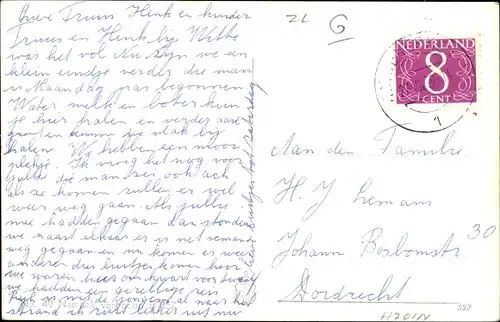 Lieve Truus Henk en kinder
Truus en Henk bij Witte
was het vol Nu zijn we een
klein eindje verder die man
is Maandag pas begonnen
Water melk en boter kun
je hier halen en verder aar
groenten kunnen we vlak bij
halen We hebben een mooi
plekje. Ik vroeg het nog voor
jullie die man zei ook ach
als ze komen zullen er wel
weer weg gaan. Als jullie
mee hadden gegaan dan stonden
we naast elkaar er is net iemand
weg gegaan en nu komen er weer
anderen
we waren hier om kwart voor twaalf
we hadden een gezellige reis
Henk is met de jongens al naar het
strand ik rust lekker uit
ZL G
NEDERLAND
8
CENT
1
Aan den Familie
H. J. Lemans
Johann Bosbomstr 30
Dordrecht
H201N
359